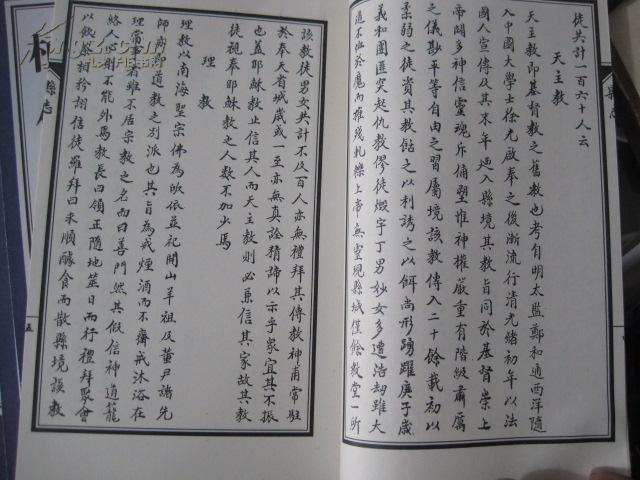 徒共計一百六十人云
天主教
天主教即基督教之舊教也考自明太監鄭和通西洋隨
入中國大學士徐光啟奉之後漸流行清光緒初年以法
國人宣傳及其末年延入縣境其教旨同於基督崇上
帝闢多神信靈魂斥偶塑惟神權嚴重有階級肅厲
之儀尠平等自由之習屬境該教傳入二十餘載初以
柔弱之徒資其教站之以利誘之以餌尚形踴躍庚子歲
義和團匪突起仇教僇徒燬宇丁男妙女多遭浩劫雖大
道不出於魔而摧殘札樂上帝無靈現縣城僅餘教堂一所
該教徒男女共計不及百人亦無禮拜其傳教神甫常駐
於奉天省城歲或一至亦無真詮精諦以示乎家宜其不振
也蓋耶穌教止信其人而天主教則必兼信其家故其教
徒視奉耶穌教之人數不加少焉
理教
理教以南海聖宗佛為皈依並祀開山羊祖及董尹諸先
師蓋道教之別派也其旨為戒煙酒而不齋戒沐浴在
理當事者雖不居宗教之名而曰善門然其假信神道籠
絡人心則不能外焉教長曰領正隨地筮日而行禮拜聚會
以飯茶相矜相信徒羅拜曰來順釀食而散縣境該教
縣志
五